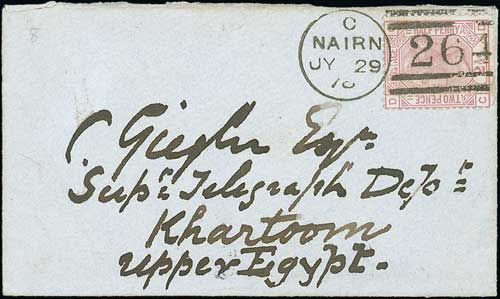 C
NAIRN
JY 29
78
264
HALF PENNY
POSTAGE
TWO PENCE
D C
C Giegler Esqr.
Supt. Telegraph Dept.
Khartoom
Upper Egypt.